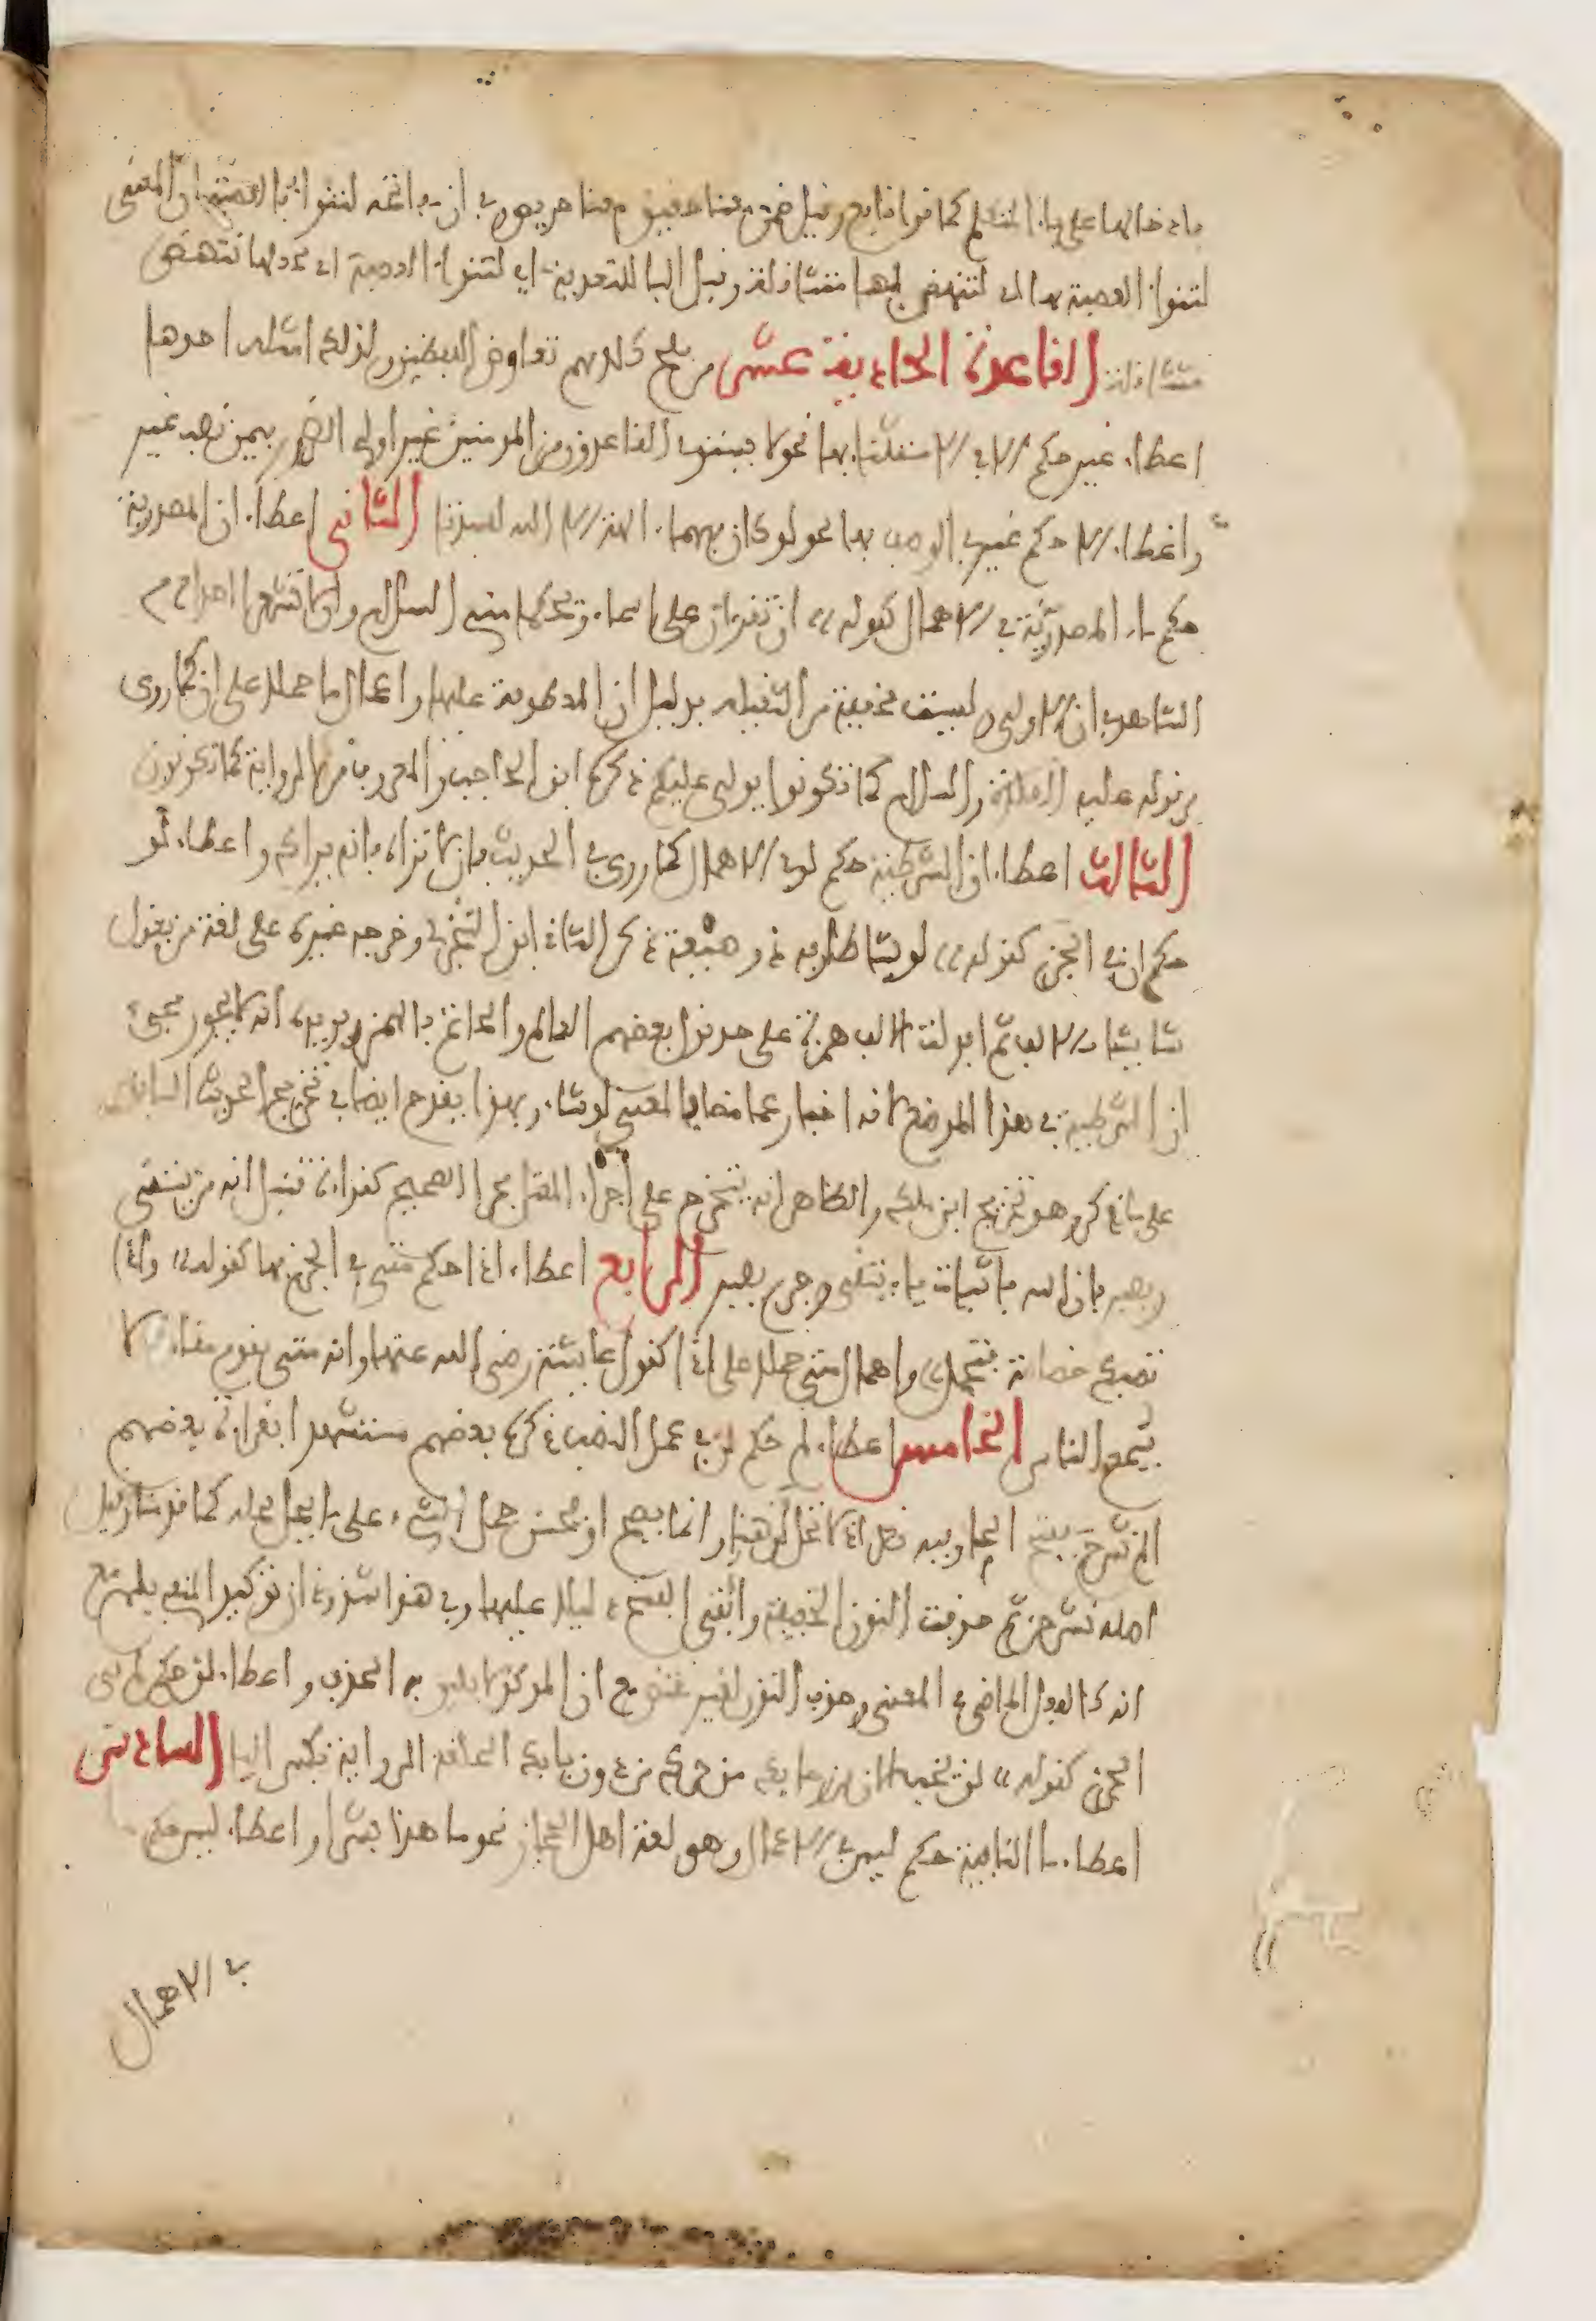 بادخالها على ياء المتكلم كما قرا نافع وقيل ضمن معنا حقيق معنا حريص و في ان مفاتحه لتنوا بالعصبة ان المعنى
لتنوا العصبة بها اي لتنهض بها متثاقلة وقيل البا للتعدية اي لتنوا العصبة اي تجعلها تنهض
متثاقلة القاعدة الحادية عشر من ملح كلامهم تقاوض اللفظين ولذلك امثلة احدها
اعطاء غير حكم الا في الاستثنا بها نحو لا يستوي القاعدون من المومنين غير اولي الضرر بيمن نصب غير
واعطاء الا حكم غير في الوصف بها نحو لو كان فيهما ءالهة الا الله لفسدتا الثاني اعطاء ان المصدرية
حكم ما المصدرية في الاهمال كقوله ان تقرءان على اسماء ويحكما مني السلام وان لا تشعرا احدا م
الشاهد في ان الاولى وليست مخففة من الثقيلة بدليل ان المعطوفة عليها واعمال ما حملا على ان كما روي
من قوله عليه الصلاة والسلام كما تكونوا يولى عليكم ذكره ابن الحاجب والمعروف في الرواية كما تكونون
الثالث اعطاء ان الشرطية حكم لو في الاهمال كما روي في الحديث فان لا تراه فانه يراك واعطاء لو
حكم ان في الجزم كقوله لو يشا طار به ذو ميعة ذكر الثاني ابن الشجري وخرجه غيره على لغة من يقول
شا يشا بالالف ثم ابدلت الالف همزة على حد قول بعضهم العالم والخاتم بالهمز ويويده انه لا يجوز مجيء
ان الشرطية في هذا الموضع لانه اخبار عما مضى فالمعنى لو شاء وبهذا يقدح ايضا في تخريج الحديث السابق
على ما ذكر وهو تخريج ابن ملك والظاهر انه يتخرج على اجراء المعتل مجرا الصحيح كقراءة قنبل انه من يتقي
ويصبر فان الله باثبات ياء يتقي وجزم يصبر الرابع اعطاء اذا حكم متى في الجزم بها كقوله واذا
تصبك خصاصة فتجمل واهمال متى حملا على اذا كقول عايشة رضي الله عنها وانه متى يقوم مقامك لا
يسمع الناس الخامس اعطاء لم حكم لن في عمل النصب ذكره بعضهم مستشهدا بقراءة بعضهم
الم نشرح بفتح الحاء وفيه نظر اذ لا تحل لن هنا وانما يصح او يحسن حمل الشيء على ما يحل محله كما قدمنا وقيل
اصله نشرحن ثم حذفت النون الخفيفة وابقى الفتح دليلا عليها وفي هذا شذوذ ان توكيد المنفي بلم مع
انه كالفعل الماضي في المعنى وحذف النون لغير مقتض مع ان الموكد لا يليق به الحذف واعطاء لن حكم لم في
الجزم كقوله لن يخب الان من رجايك من حرك من دون بابك الحلقة الرواية بكسر البا السادس
اعطاء ما النافية حكم ليس في الاعمال وهو لغة اهل الحجاز نحو ما هذا بشرا واعطاء ليس حكم
في الاهمال